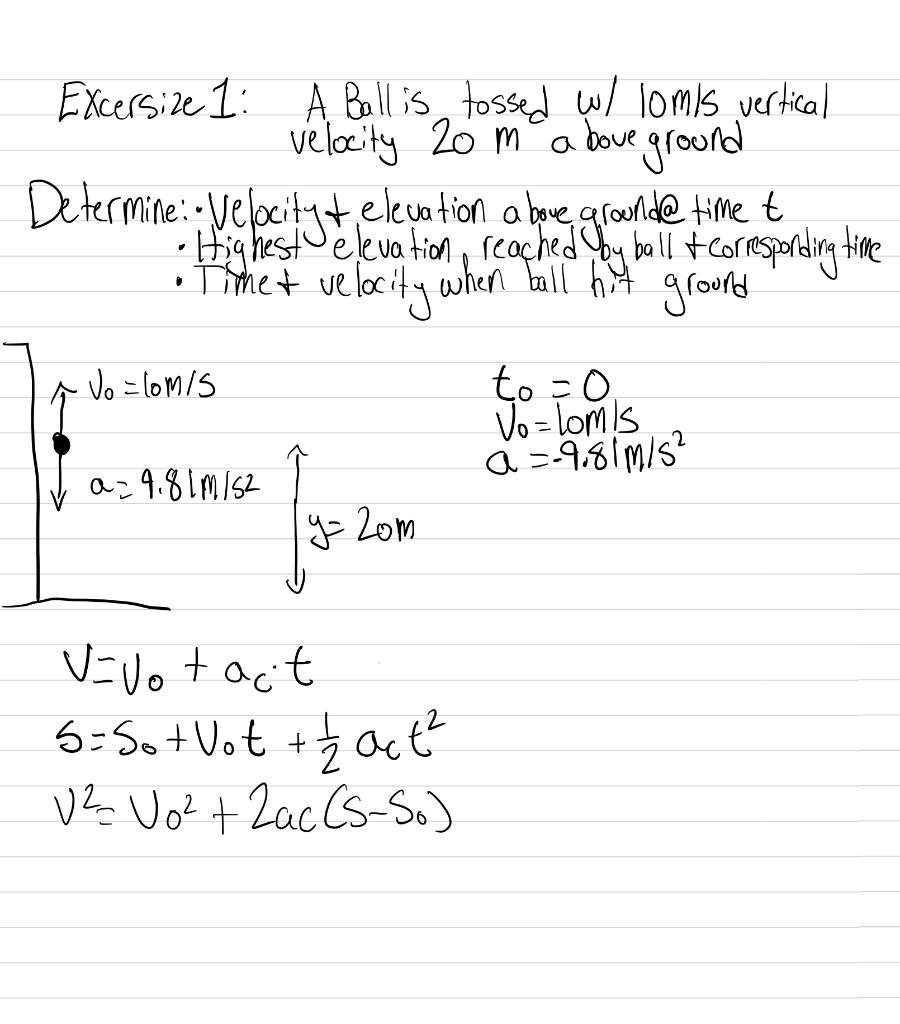 Excersize 1: A Ball is tossed w/ 10m/s vertical
velocity 20 m above ground
Determine: • Velocity + elevation above ground @ time t
• Highest elevation reached by ball + corresponding time
• Time + velocity when ball hit ground
V₀ = 10m/s
a = 9.81m/s2
y = 20m
t₀ = 0
V₀ = 10m/s
a = -9.81m/s²
V = V₀ + ac·t
S = S₀ + V₀t + 1/2 act²
V² = V₀² + 2ac(S-S₀)